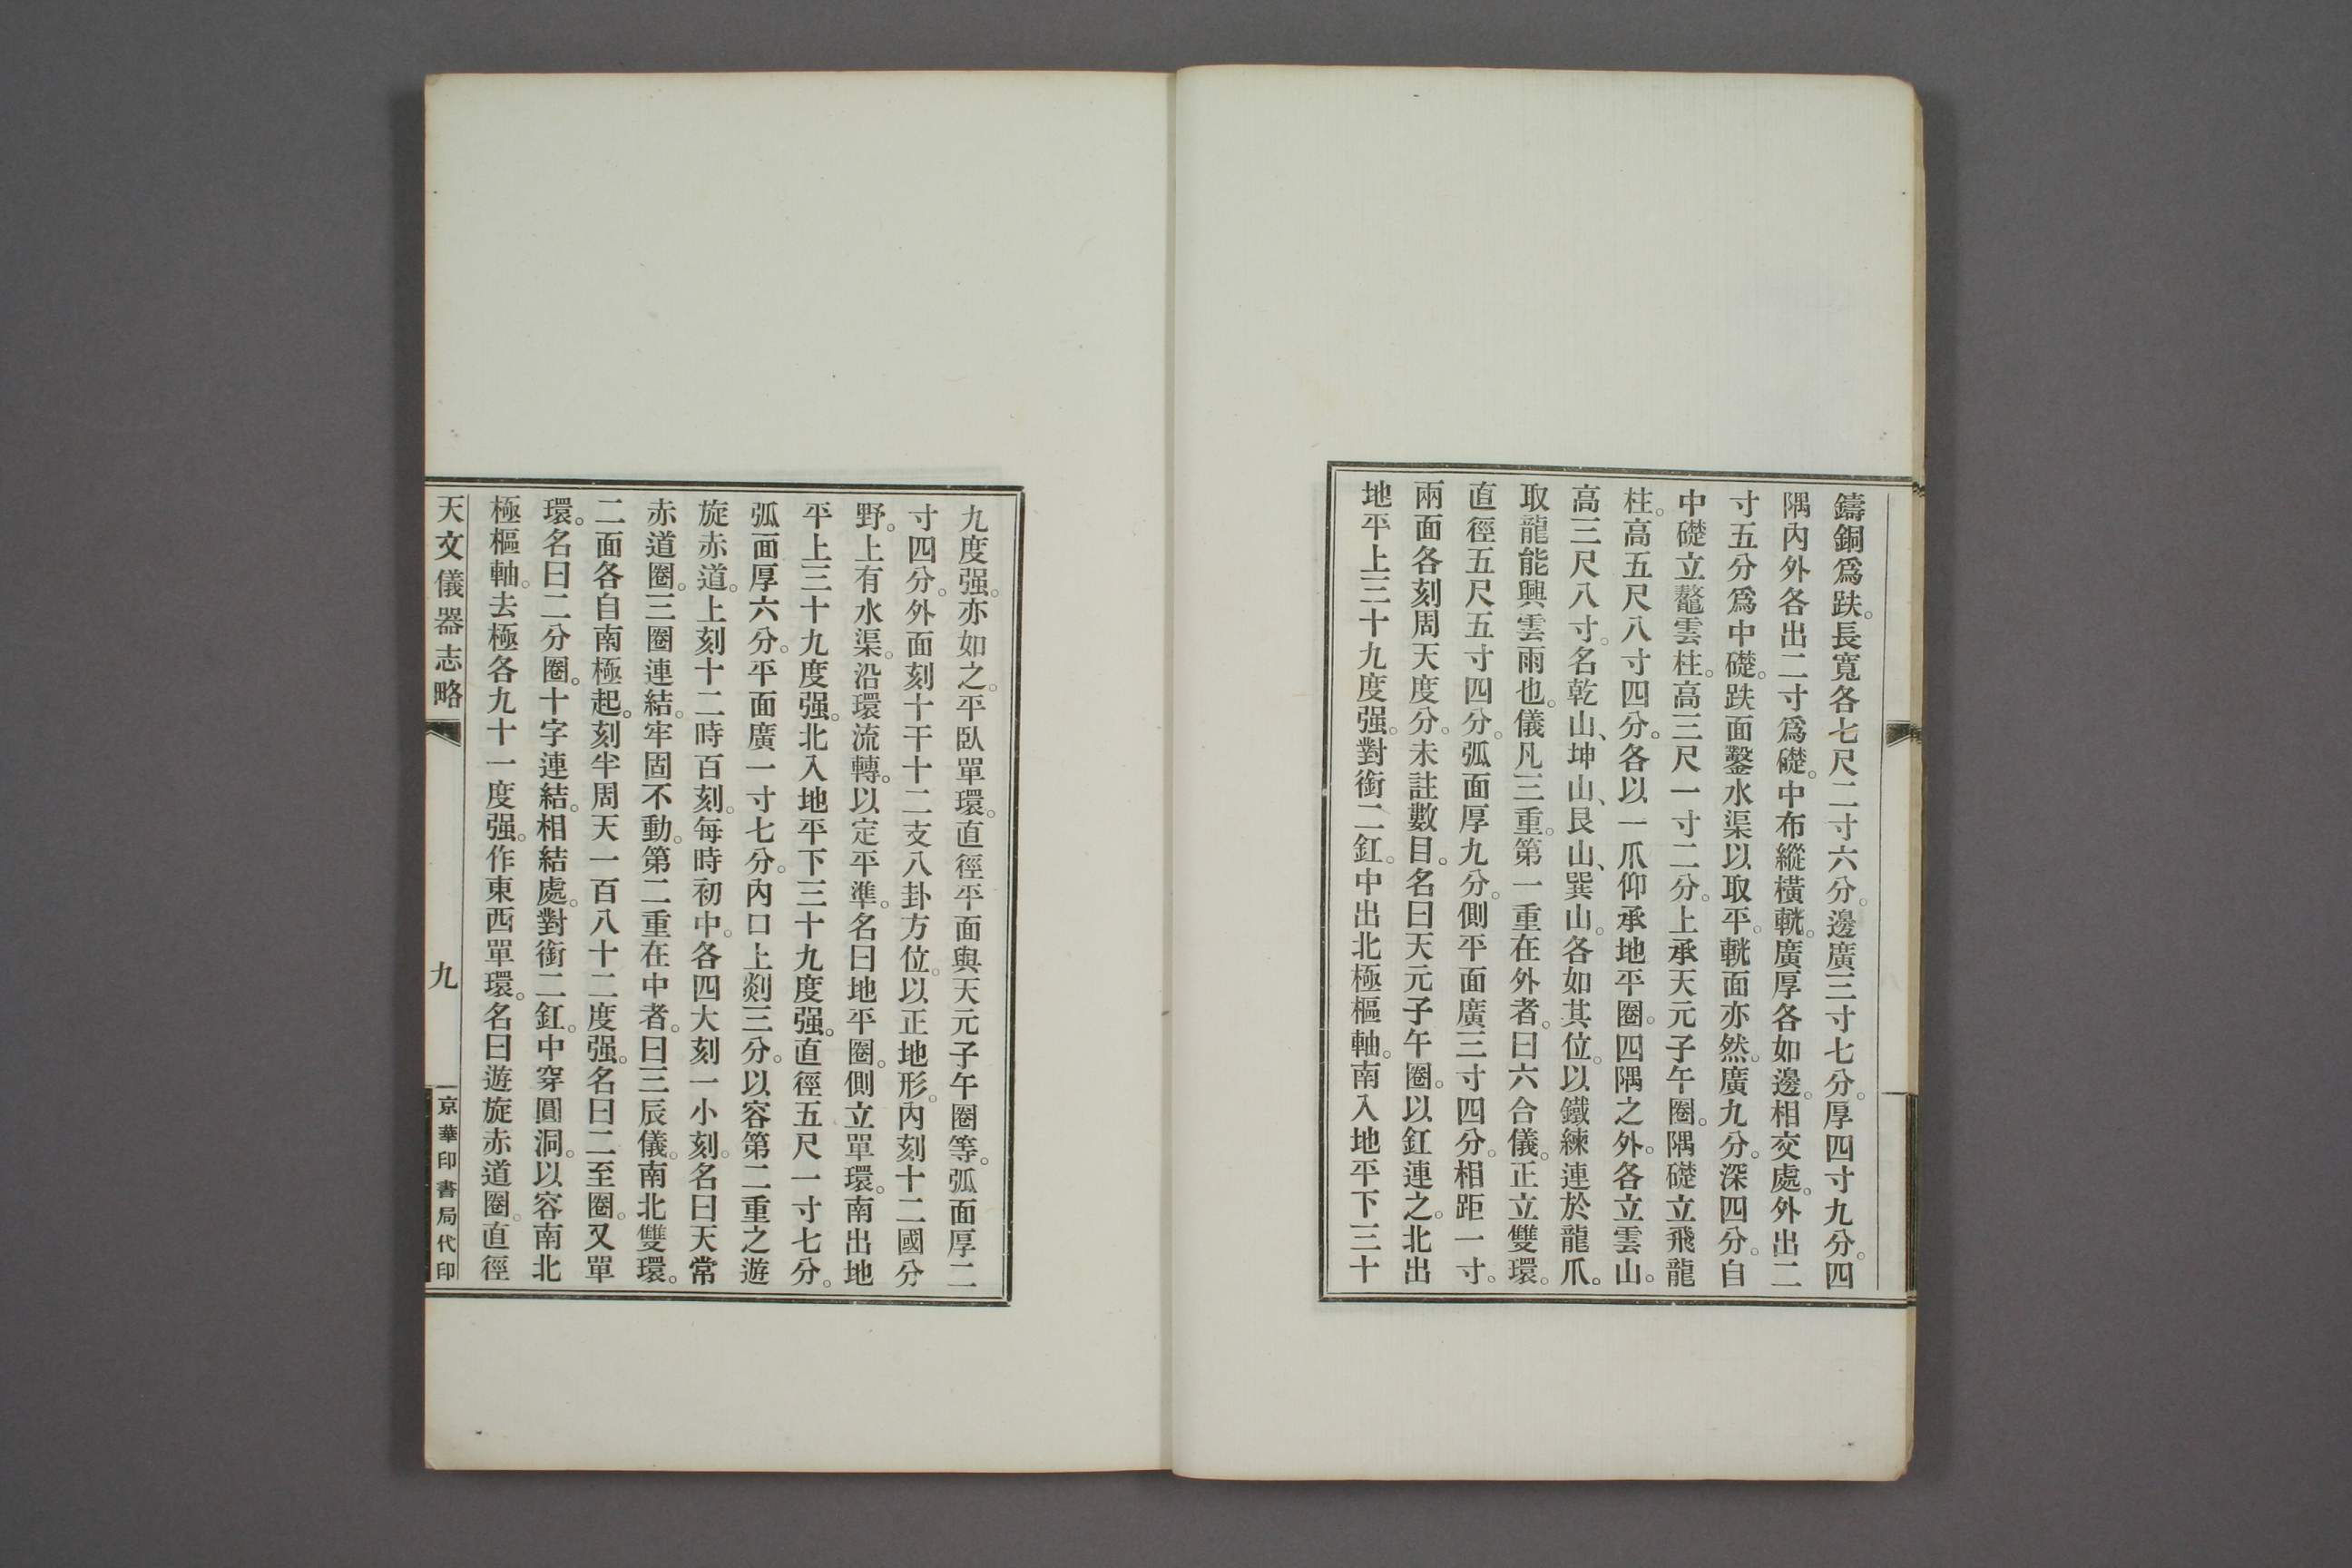 鑄銅爲趺。長寬各七尺二寸六分。邊廣三寸七分。厚四寸九分。四
隅內外各出二寸爲礎。中布縱橫輄。廣厚各如邊。相交處。外出二
寸五分爲中礎。趺面鑿水渠以取平。輄面亦然。廣九分。深四分。自
中礎立鼇雲柱。高三尺一寸二分。上承天元子午圈。隅礎立飛龍
柱。高五尺八寸四分。各以一爪仰承地平圈。四隅之外。各立雲山。
高三尺八寸。名乾山、坤山、艮山、巽山。各如其位。以鐵練連於龍爪。
取龍能興雲雨也。儀凡三重。第一重在外者。曰六合儀。正立雙環。
直徑五尺五寸四分。弧面厚九分。側平面廣三寸四分。相距一寸。
兩面各刻周天度分。未註數目。名曰天元子午圈。以釭連之。北出
地平上三十九度强。對銜二釭。中出北極樞軸。南入地平下三十
九度强。亦如之。平臥單環。直徑平面與天元子午圈等。弧面厚二
寸四分。外面刻十干十二支八卦方位。以正地形。內刻十二國分
野。上有水渠。沿環流轉。以定平準。名曰地平圈。側立單環。南出地
平上三十九度强。北入地平下三十九度强。直徑五尺一寸七分。
弧面厚六分。平面廣一寸七分。內口上剡三分。以容第二重之遊
旋赤道。上刻十二時百刻。每時初中。各四大刻一小刻。名曰天常
赤道圈。三圈連結。牢固不動。第二重在中者。曰三辰儀。南北雙環。
二面各自南極起。刻半周天一百八十二度强。名曰二至圈。又單
環。名曰二分圈。十字連結。相結處。對銜二釭。中穿圓洞。以容南北
極樞軸。去極各九十一度强。作東西單環。名曰遊旋赤道圈。直徑
天文儀器志略
九
京華印書局代印